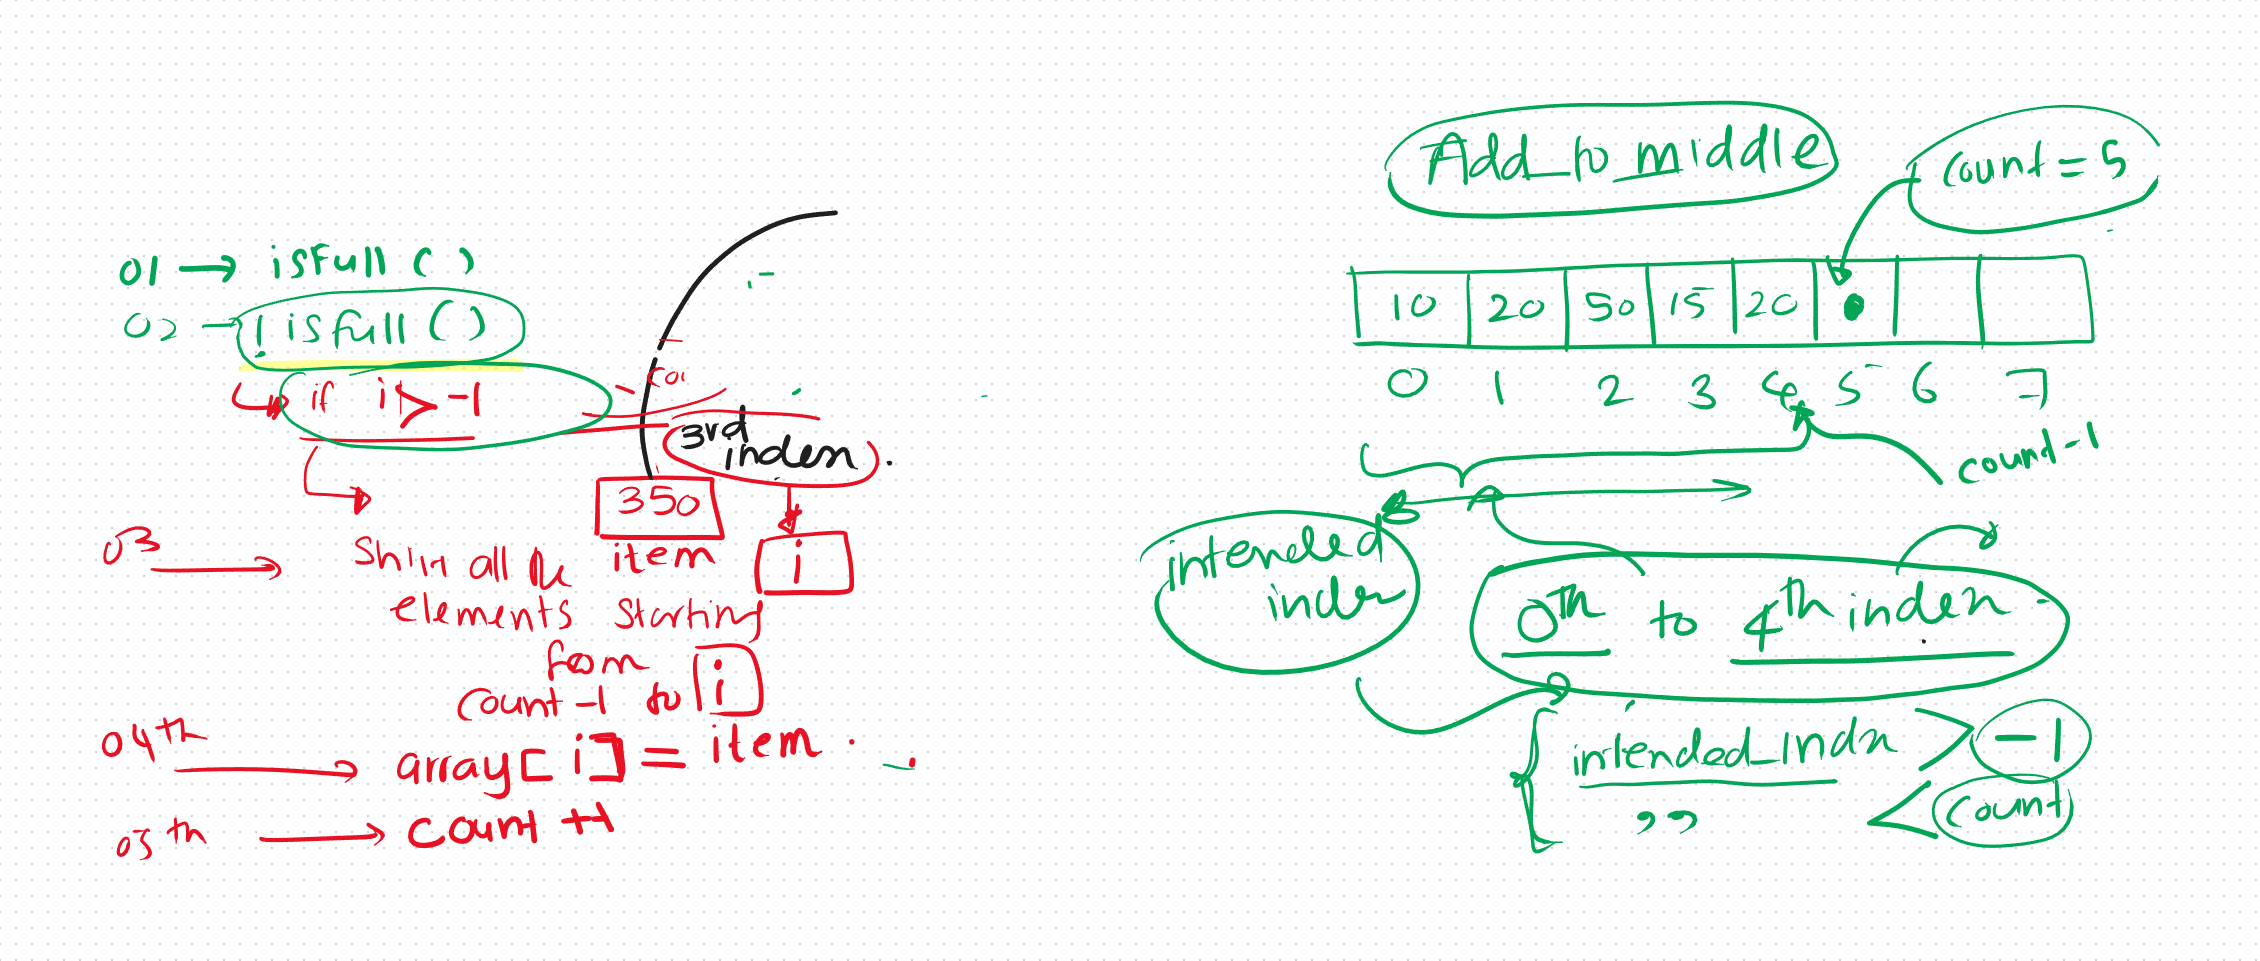 01 → isfull ( )
02 → ! isfull ( )
if i > -1
3rd
index.
350
item
i
03 →
Shift all the
elements starting
from
count-1 to i
04th → array[i] = item.
05th → count ++
Add_to_middle
count = 5
10 20 50 15 20
0 1 2 3 4 5 6 7
count-1
intended
index
0th to 4th index
intended_indx > -1
,, < count